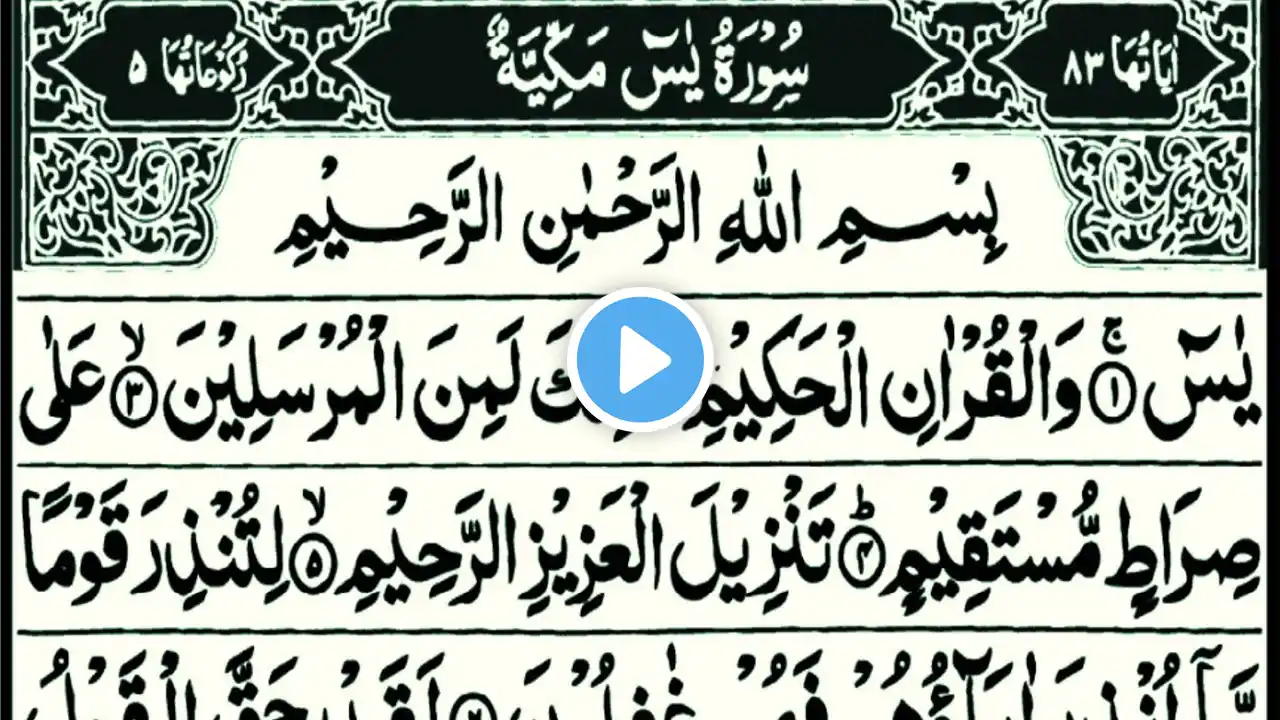 اٰيَاتُهَا ٨٣ سُوْرَةُ يٰسٓ مَكِّيَّةٌ رُكُوْعَاتُهَا ٥
بِسْمِ اللّٰهِ الرَّحْمٰنِ الرَّحِيْمِ
يٰسٓ ۚ ﴿١﴾ وَالْقُرْاٰنِ الْحَكِيْمِ لَمِنَ الْمُرْسَلِيْنَ ۙ ﴿٣﴾ عَلٰى
صِرَاطٍ مُّسْتَقِيْمٍ ؕ ﴿٤﴾ تَنْزِيْلَ الْعَزِيْزِ الرَّحِيْمِ ۙ ﴿٥﴾ لِتُنْذِرَ قَوْمًا
مَّاۤ اُنْذِرَ اٰبَآؤُهُمْ فَهُمْ غٰفِلُوْنَ ﴿٦﴾ لَقَدْ حَقَّ الْقَوْلُ